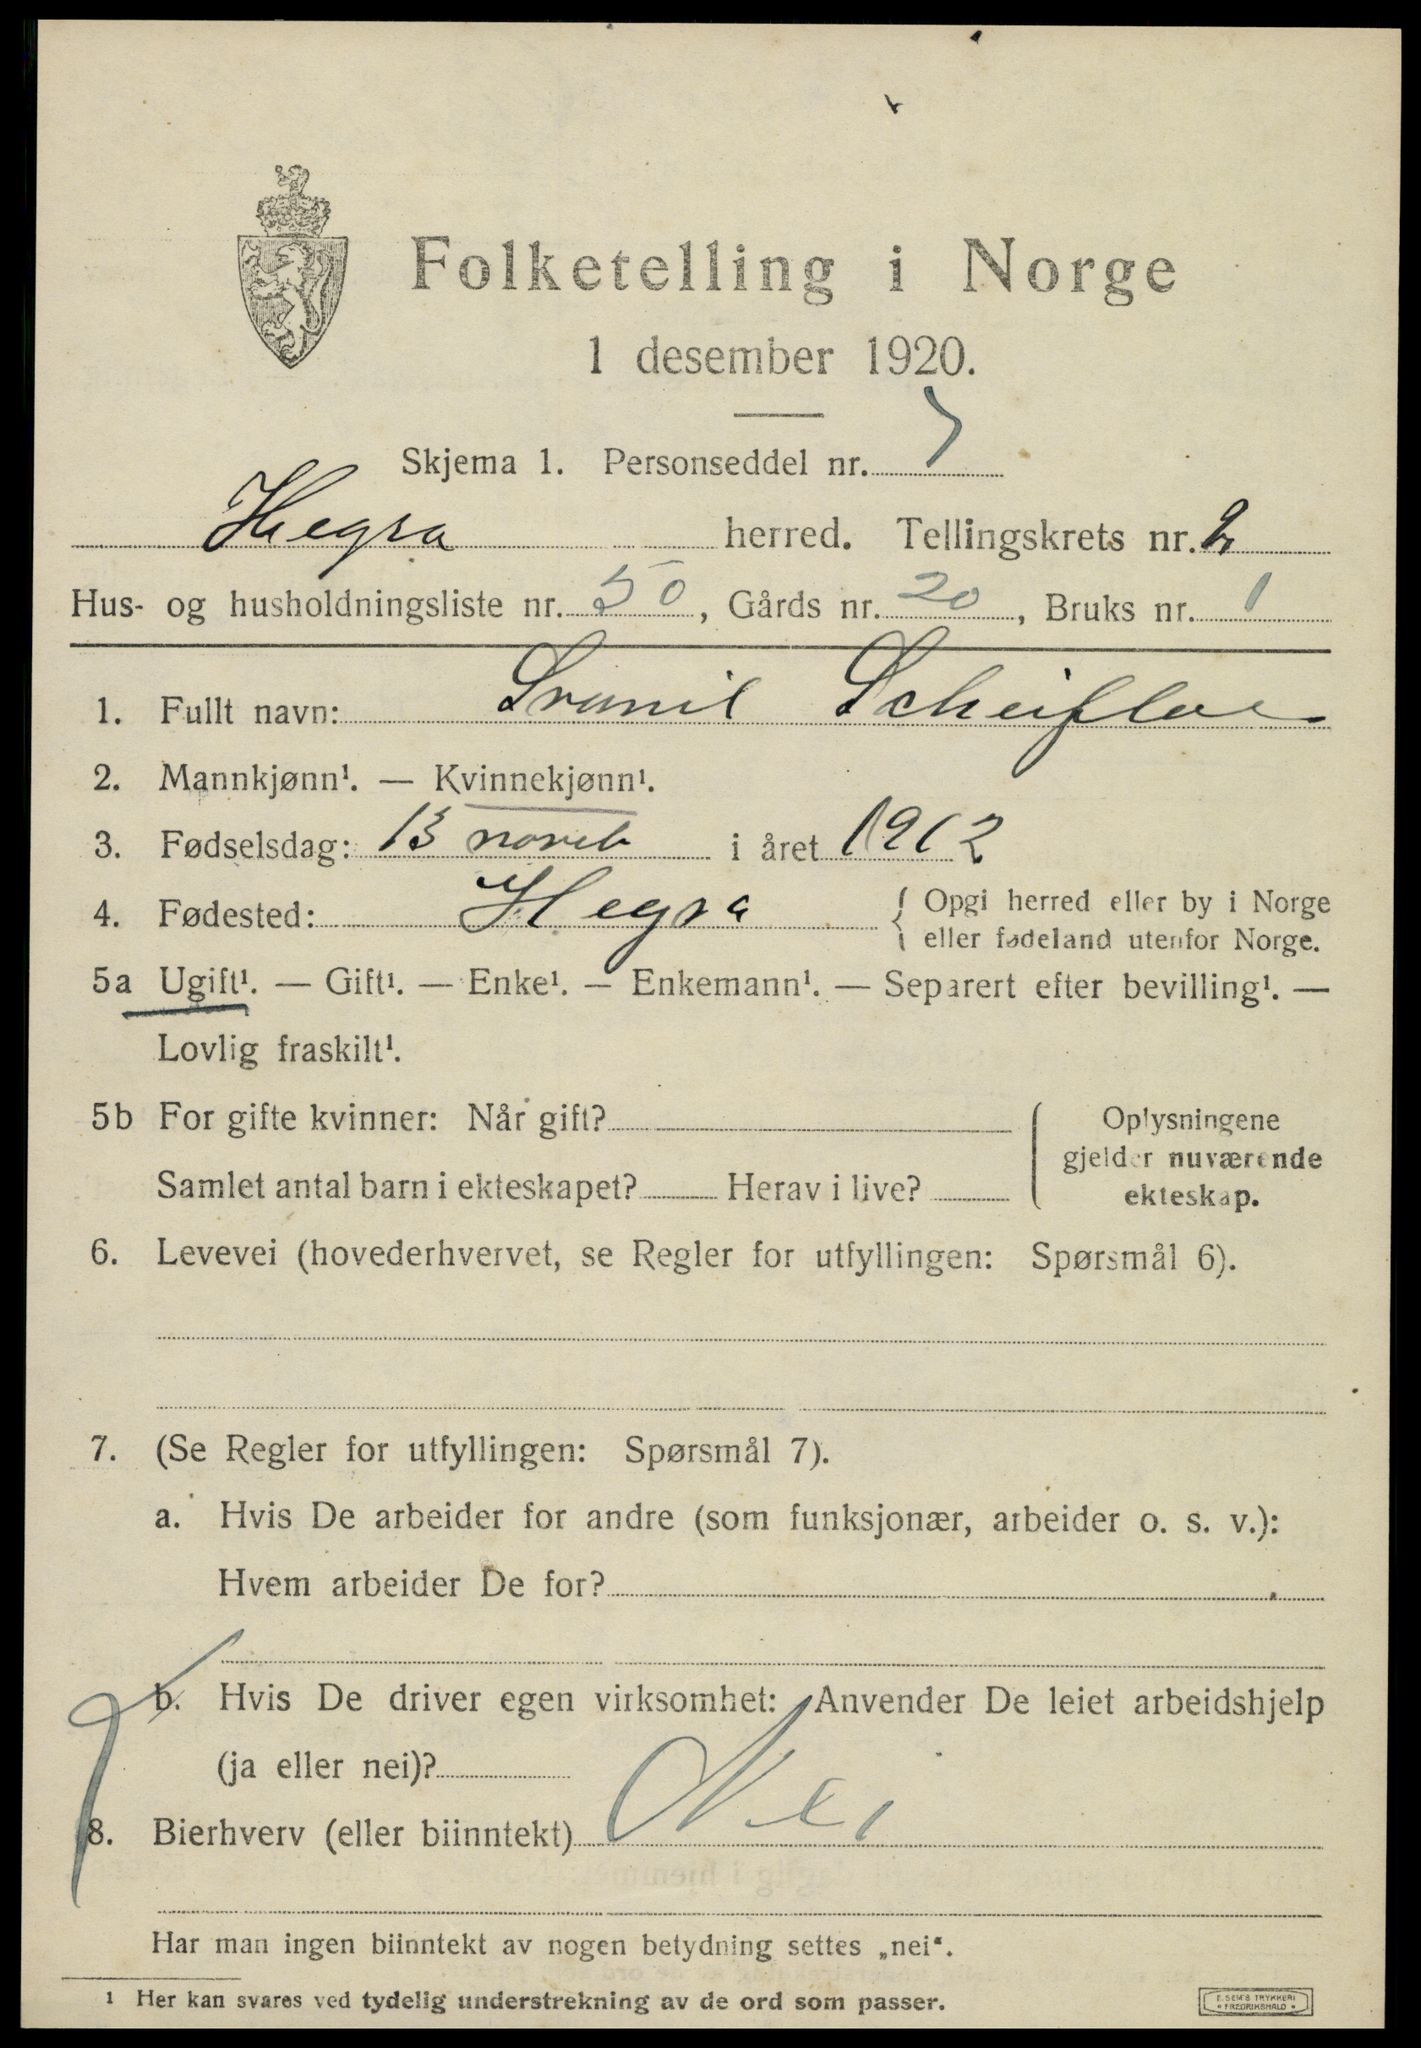 Folketelling i Norge
1 desember 1920.
Skjema 1. Personseddel nr. 7
Hegra herred. Tellingskrets nr. 2
Hus- og husholdningsliste nr. 50, Gårds nr. 20, Bruks nr. 1
1. Fullt navn: Svanil Scheifloe
2. Mannkjønn¹. — Kvinnekjønn¹.
3. Fødselsdag: 13 noveb i året 1912
4. Fødested: Hegra { Opgi herred eller by i Norge
eller fødeland utenfor Norge.
5a Ugift¹. — Gift¹. — Enke¹. — Enkemann¹. — Separert efter bevilling¹. —
Lovlig fraskilt¹.
5b For gifte kvinner: Når gift? { Oplysningene
gjelder nuværende
Samlet antal barn i ekteskapet? Herav i live? ekteskap.
6. Levevei (hovederhvervet, se Regler for utfyllingen: Spørsmål 6).
7. (Se Regler for utfyllingen: Spørsmål 7).
a. Hvis De arbeider for andre (som funksjonær, arbeider o. s. v.):
Hvem arbeider De for?
b. Hvis De driver egen virksomhet: Anvender De leiet arbeidshjelp
(ja eller nei)?
8. Bierhverv (eller biinntekt) Nei
Har man ingen biinntekt av nogen betydning settes „nei“.
¹ Her kan svares ved tydelig understrekning av de ord som passer.
E. SEM'S TRYKKERI
• FREDRIKSHALD •